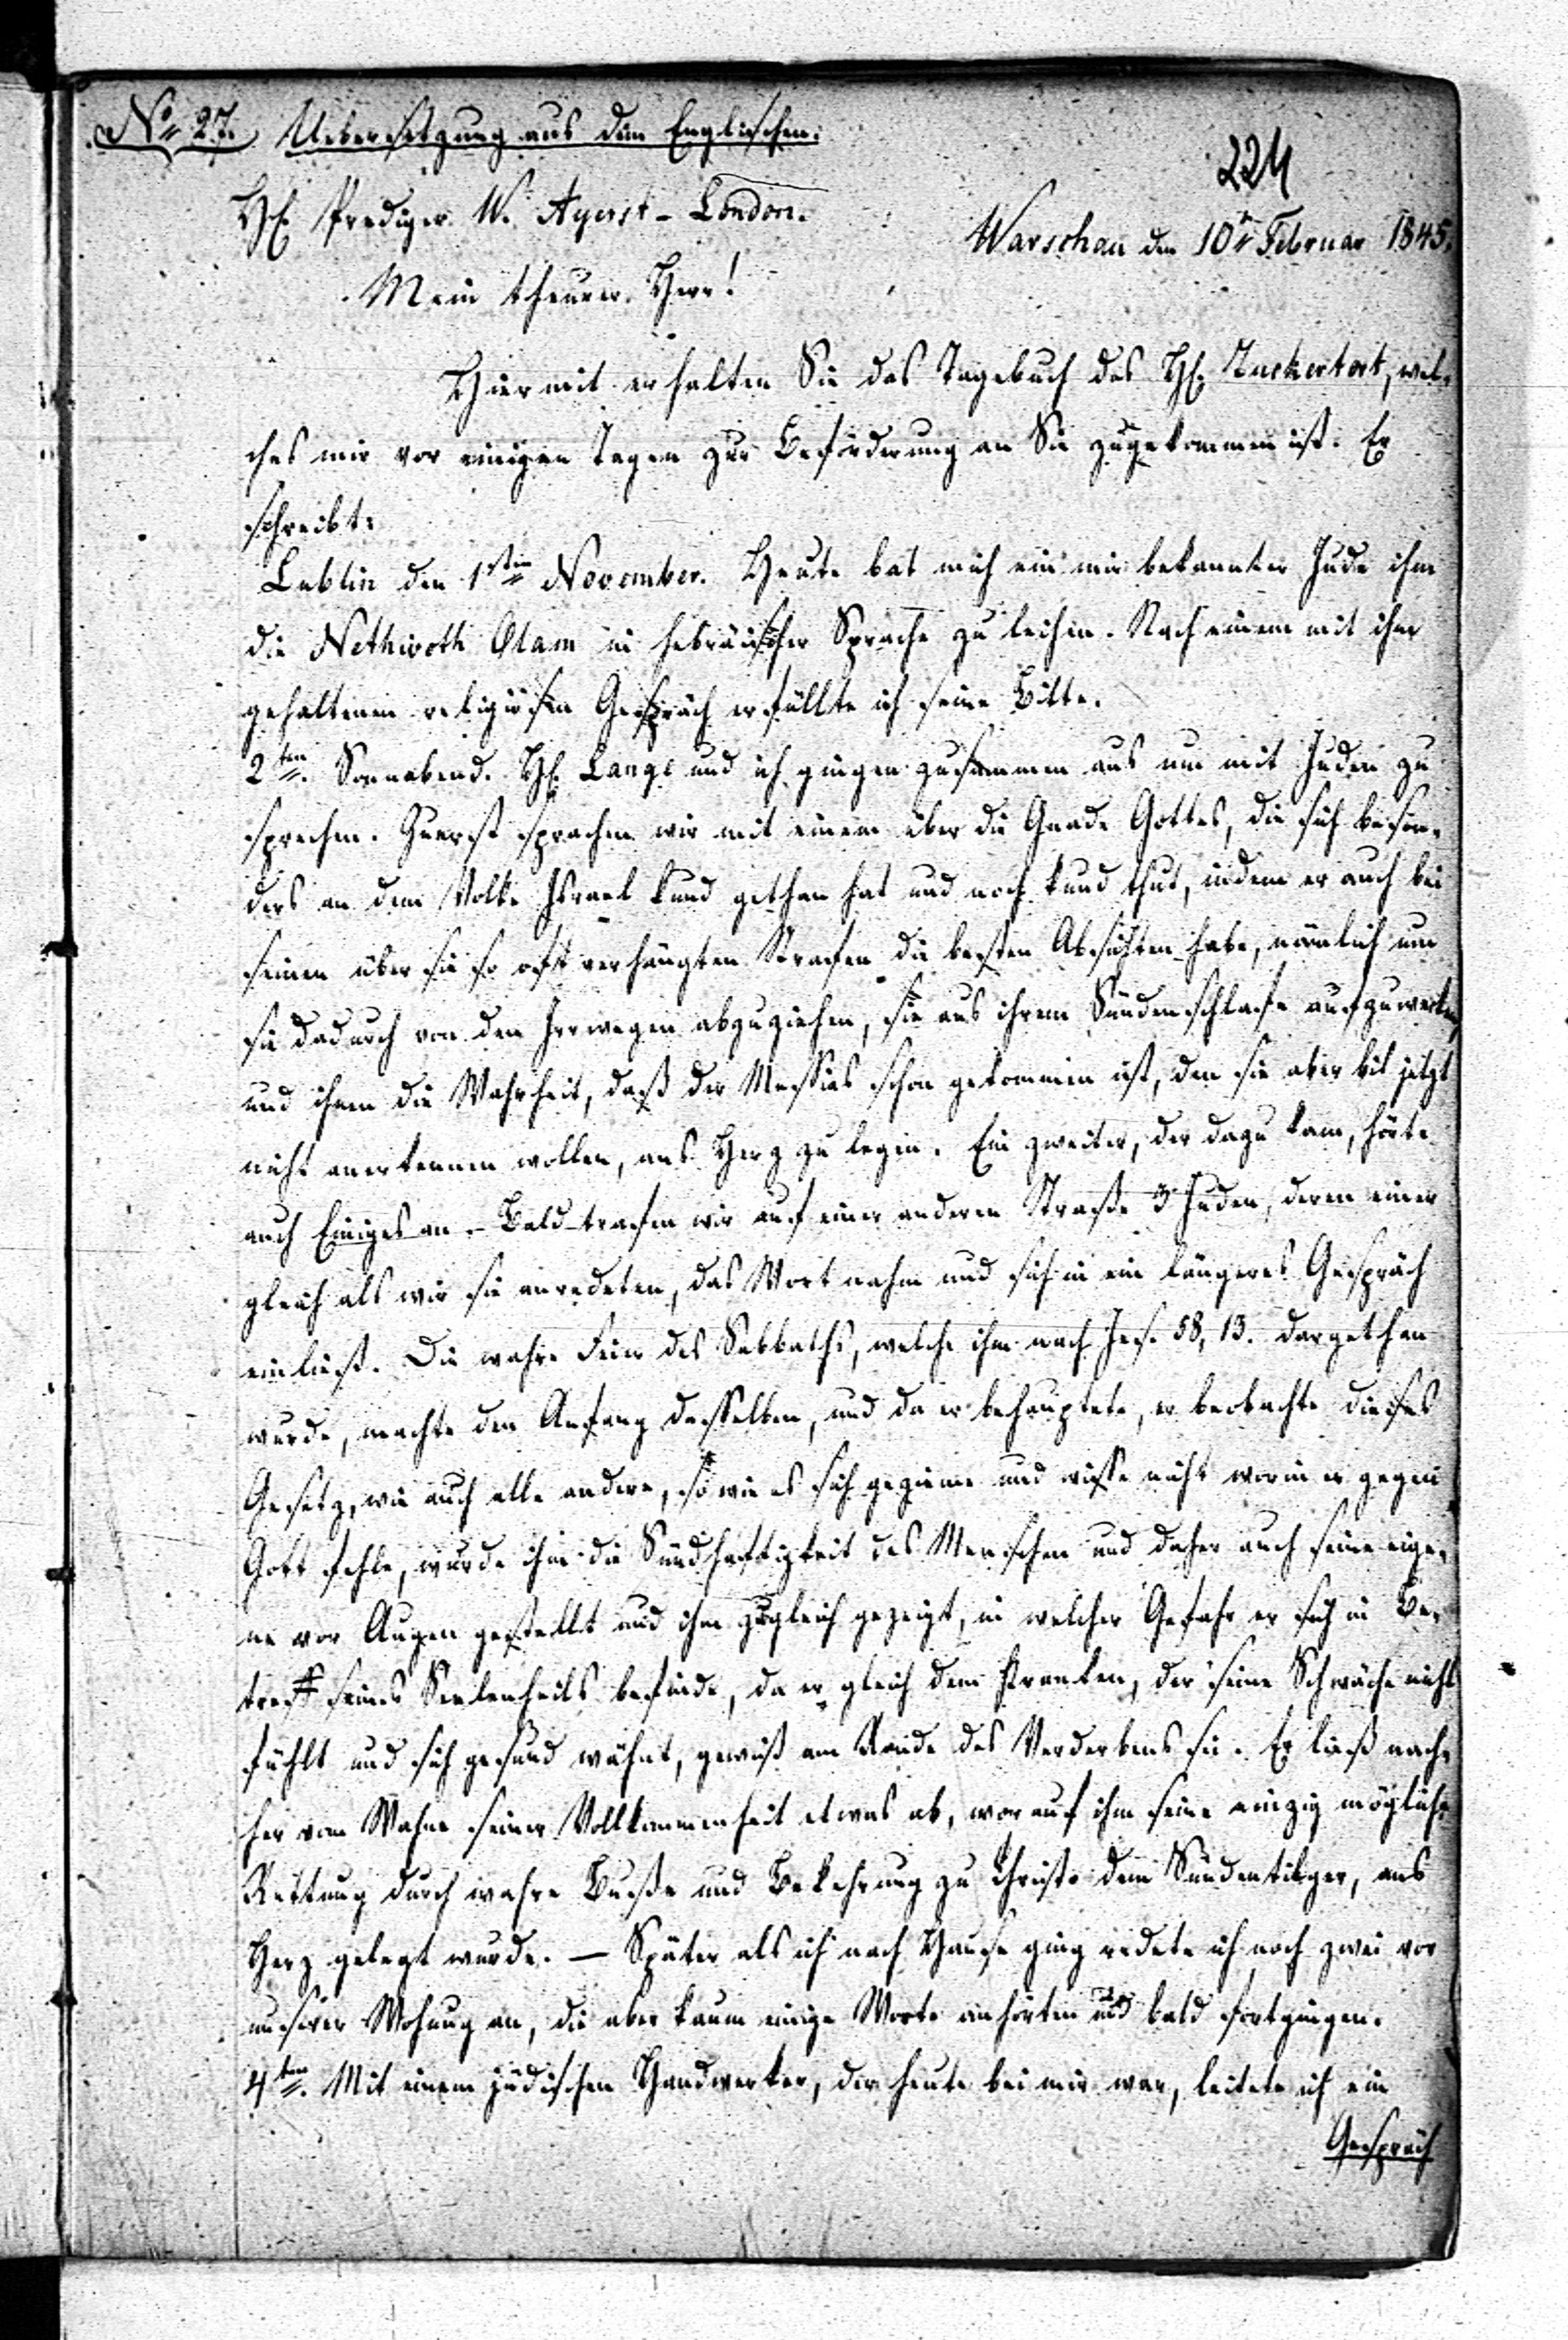 No 27. Uebersetzung aus dem Englischen.
224
H. Prediger W. Ayerst - London.
Warschau den 10n Februar 1845.
Mein theurer Herr!
Hiermit erhalten Sie das Tagebuch des H. Zuckertort, wel-
ches mir vor einigen Tagen zur Beförderung an Sie zugekommen ist. Er
schreibt:
Lublin den 1sten November. Heute bat mich ein mir bekannter Jude ihm
die Nethivoth Olam in hebräischer Sprache zu leihen. Nach einem mit ihm
gehaltenen religiösen Gespräch erfüllte ich seine Bitte.
2ten. Sonnabend. H. Lange und ich gingen zusammen aus um mit Juden zu
sprechen. Zuerst sprachen wir mit einem über die Gnade Gottes, die sich beson-
ders an dem Volke Israel kund gethan hat und noch kund thut, indem er auch bei
seinen über sie so oft verhängten Strafen die besten Absichten habe, nämlich um
sie dadurch von den Irrwegen abzuziehen, sie aus ihrem Sündenschlafe aufzuwecken,
und ihnen die Wahrheit, daß der Messias schon gekommen ist, den sie aber bis jetzt
nicht anerkennen wollen, ans Herz zu legen. Ein zweiter, der dazu kam, hörte
auch Einiges an. - Bald trafen wir auf einer anderen Straße 3 Juden, deren einer
gleich als wir sie anredeten, das Wort nahm und sich in ein längeres Gespräch
einließ. Die wahre Feier des Sabbaths, welche ihm nach Jes. 58, 13. dargethan
wurde, machte den Anfang desselben, und da er behauptete, er beobachte dieses
Gesetz, wie auch alle andere, so wie es sich gezieme und wisse nicht worin er gegen
Gott fehle, wurde ihm die Sündhaftigkeit des Menschen und daher auch seine eige-
ne vor Augen gestellt und ihm zugleich gezeigt, in welcher Gefahr er sich in Be-
treff seines Seelenheils befinde, da er gleich dem Kranken, der seine Schwäche nicht
fühlt und sich gesund wähnt, gewiß am Rande des Verderbens sei. Er ließ nach-
her vom Wahne seiner Vollkommenheit etwas ab, worauf ihm seine einzig mögliche
Rettung durch wahre Buße und Bekehrung zu Christo dem Sündentilger, ans
Herz gelegt wurde. — Später als ich nach Hause ging redete ich noch zwei vor
unserer Wohnung an, die aber kaum einige Worte anhörten und bald fortgingen.
4ten. Mit einem jüdischen Handwerker, der heute bei mir war, leitete ich ein
Gespräch